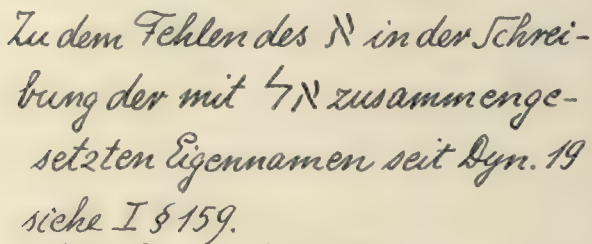 Zu dem Fehlen des א in der Schrei-
bung der mit אל zusammenge-
setzten Eigennamen seit Dyn. 19
siehe I § 159.